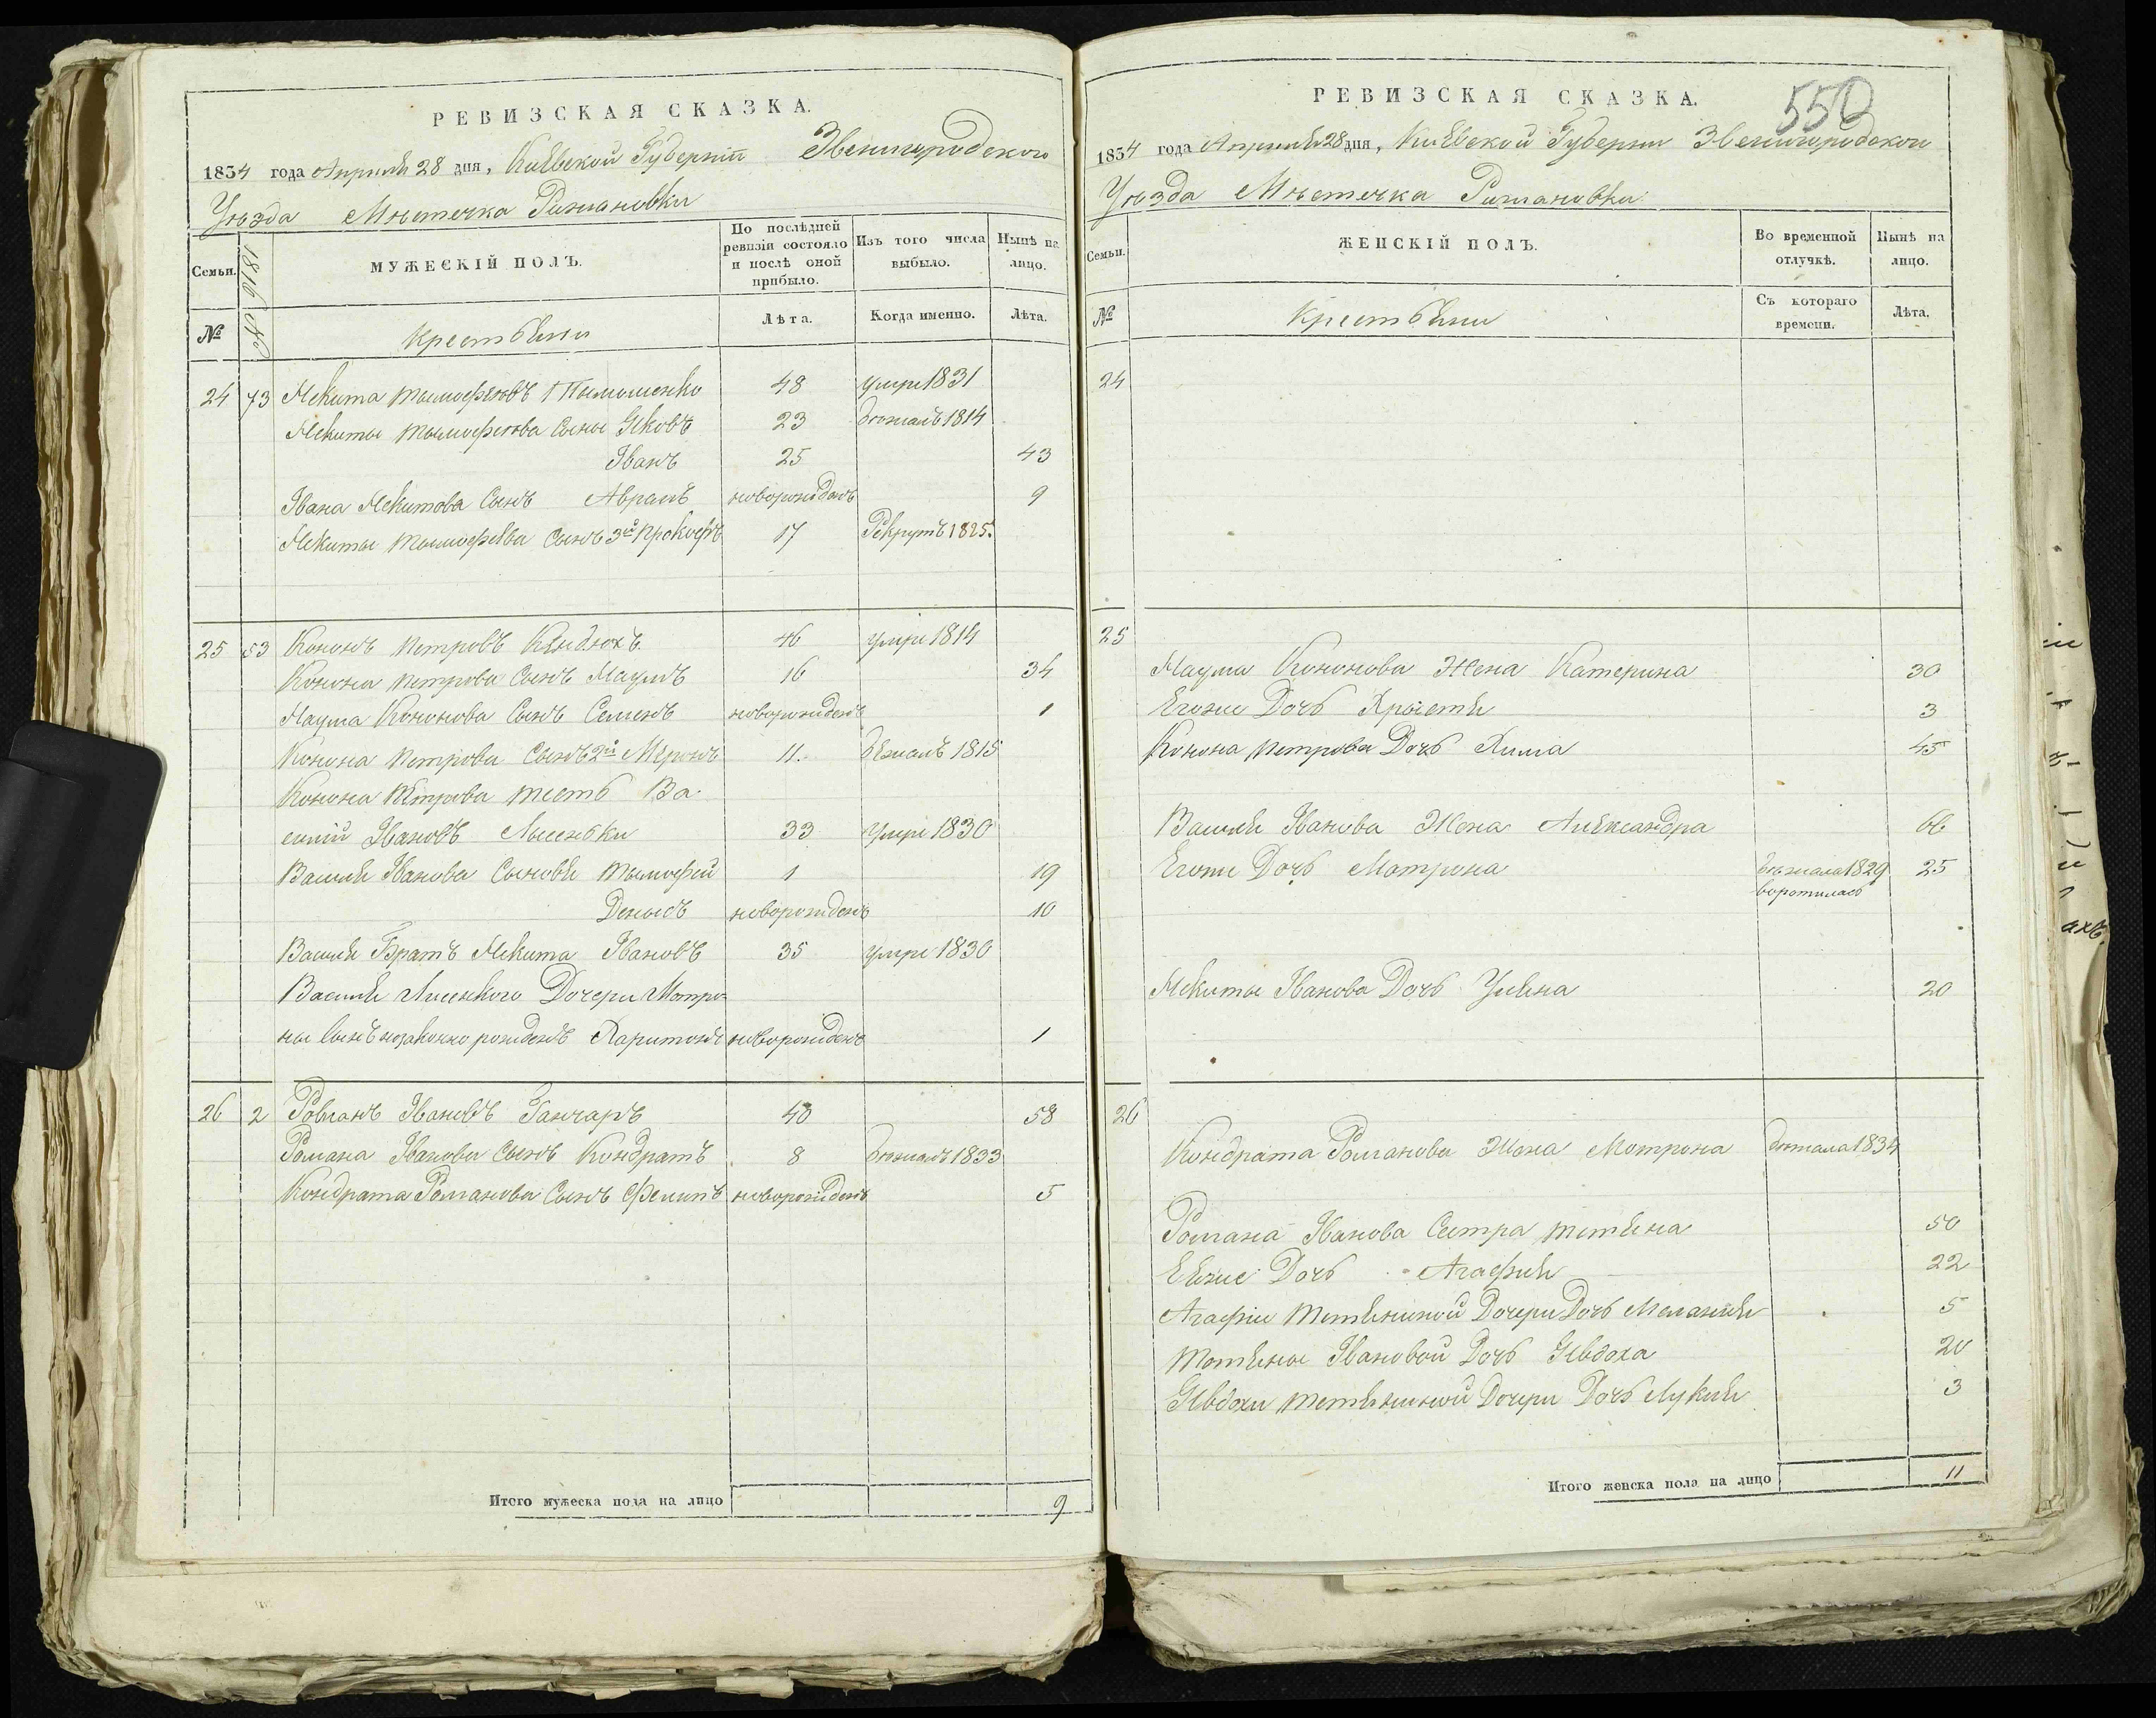 РЕВИЗСКАЯ СКАЗКА.
1834 года Апрыля 28 дня, Кіевской Губерніи Звенигородского
Уѣзда Мѣстечка Рижановки
Семьи.
1816 №
МУЖЕСКІЙ ПОЛЪ.
По послѣдней ревизіи состояло и послѣ оной прибыло.
Изъ того числа выбыло.
Нынѣ на лицо.
№
Крестьяни
Лѣта.
Когда именно.
Лѣта.
24 73 Мекита Тымофеювъ Тымошенко 48 умре 1831
Мекиты Тымофеюва Сыны Яковъ 23 бѣжалъ 1814
Іванъ 25 43
Івана Мекитова Сынъ Аврамъ новорожденъ 9
Мекиты Тымофеева Сынъ 3й Прокофъ 17 Рекрутъ 1825.
25 53 Кононъ Петровъ Кендюхъ 46 умре 1814
Конона Петрова Сынъ Наумъ 16 34
Наума Кононова Сынъ Семенъ новорожденъ 1
Конона Петрова Сынъ 2й Меронъ 11. бежалъ 1815
Конона Петрова тесть Ва
силій Івановъ Лысенькы 33 умре 1830
Василя Іванова Сыновя Тымофій 1 19
Денысъ новорожденъ 10
Василя Братъ Мекита Івановъ 35 умре 1830
Василя Лисенкого Дочери Мотро-
ны Сынъ незаконно рожденъ Харитонъ новорожденъ 1
26 2 Романъ Івановъ Ганчаръ 40 58
Романа Іванова Сынъ Кондратъ 8 бѣжалъ 1833
Кондрата Романова Сынъ Фелипъ новорожденъ 5
Итого мужеска пола на лицо 9
550
РЕВИЗСКАЯ СКАЗКА.
1834 года Апрыля 28 дня, Кіевской Губерніи Звенигородского
Уѣзда Мѣстечка Рижановки
Семьи.
ЖЕНСКІЙ ПОЛЪ.
Во временной отлучкѣ.
Нынѣ на лицо.
№
Крестьяни
Съ котораго времени.
Лѣта.
24
25
Наума Кононова Жена Катерина 30
Егоже Дочь Хрыстя 3
Конона Петрова Дочь Хима 45
Василя Іванова Жена Александра 66
Егоже Дочь Мотрона бѣжала 1829 25
воротилась
Мекиты Іванова Дочь Уляна 20
26
Кондрата Романова Жена Мотрона бѣжала 1834
Романа Іванова Сестра Тетяна 50
Еяже Дочь Агафия 22
Агафіи Тетяниной Дочери Дочь Мелания 5
Тетяны Івановой Дочь Явдоха 20
Явдохи Тетяниной Дочери Дочь Лукия 3
Итого женска пола на лицо 11
ахъ